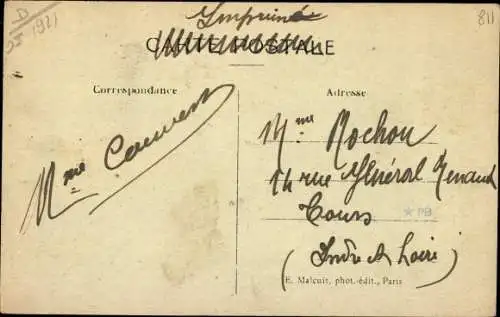 Imprimé
CARTE POSTALE
811
1921
Correspondance
Mme Cauvert
Adresse
Mme Rochon
14 rue Général Renaud
Tours
PB
(Indre & Loire)
E. Malcuit, phot.-édit., Paris